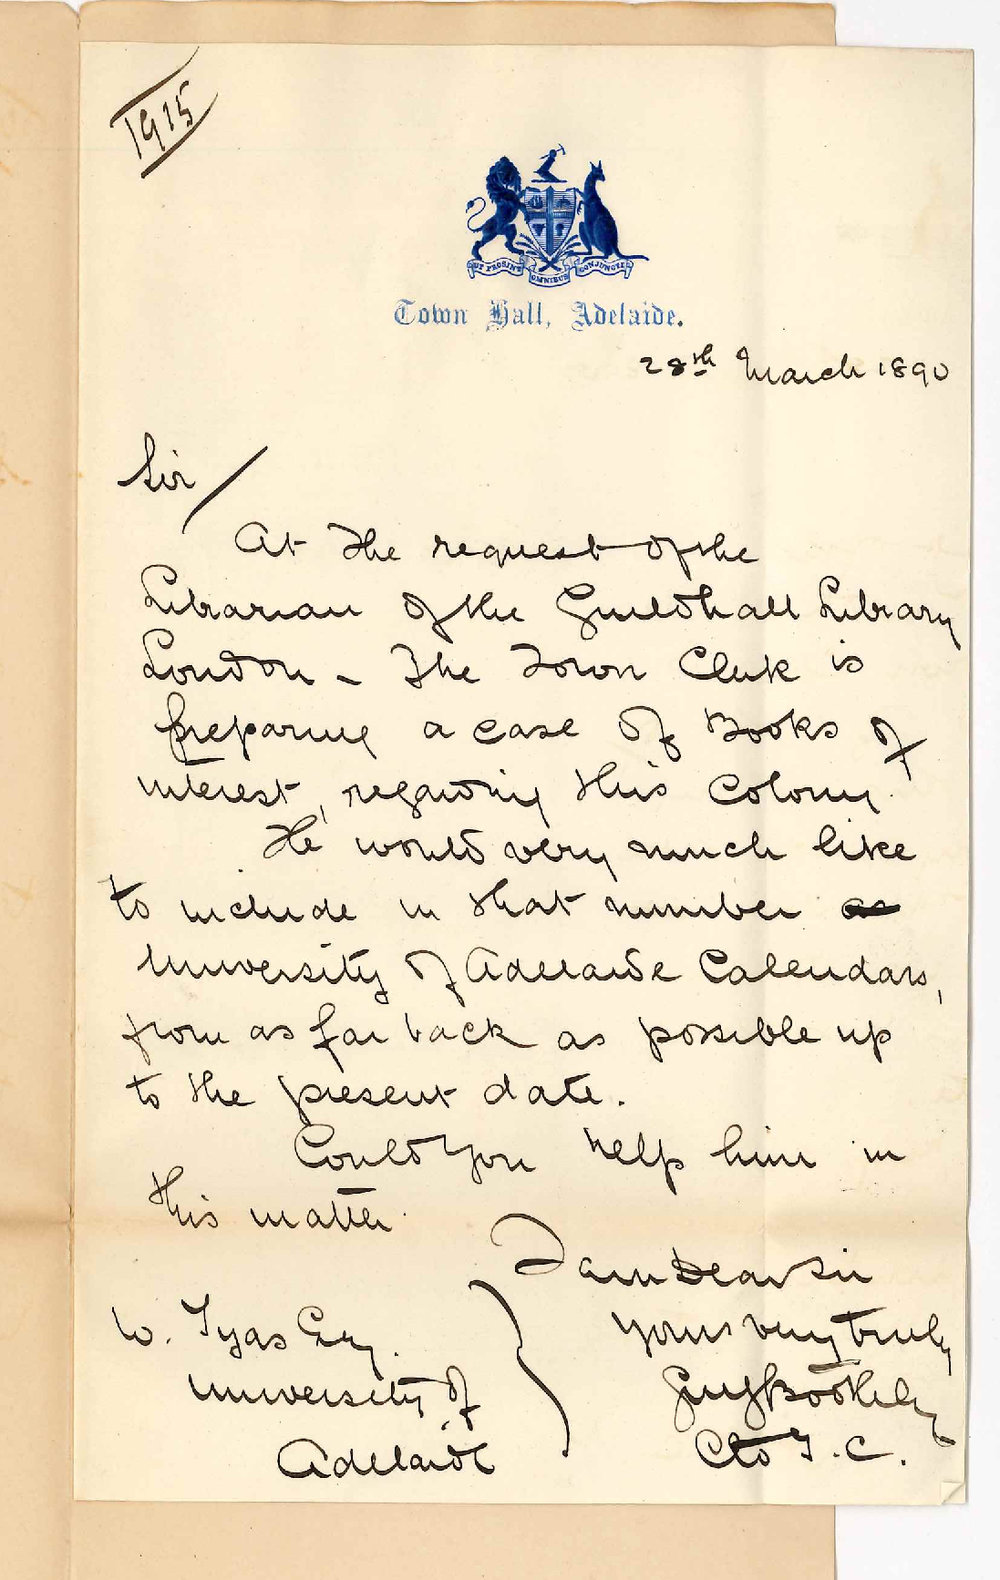 1915
UT PROSINT OMNIBUS CONJUNCTI
Town Hall, Adelaide.
28th March 1890
Sir/
At the request of the
Librarian of the Guildhall Library
London - The Town Clerk is
preparing a case of Books of
interest, regarding this Colony.
He would very much like
to include in that number
University of Adelaide Calendars,
from as far back as possible up
to the present date.
Could you help him in
this matter.
I am Dear Sir
Yours very truly
Guy Boothby
Clk to T.C.
W. Tyas Esq.
University of
Adelaide